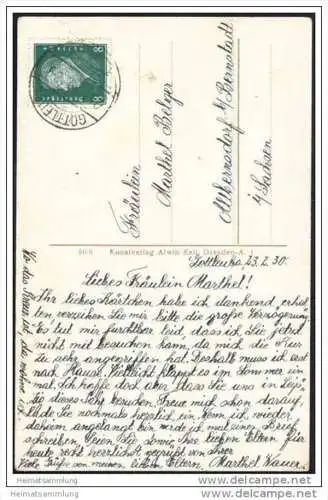 8 8
Deutsches
GOTTLEU
Fräulein
Marthel Belger
Altbernsdorf b/Bernstadt
i/Sachsen
Wo das Kreuz ist, da wohne ich.
Kunstverlag Alwin Keil, Dresden-A. 1
Gottleuba, 23.2.30.
Liebes Fräulein Marthel!
Ihr liebes Kärtchen habe ich dankend, erhal
ten, verzeihen Sie mir bitte die große Verzögerung.
Es tut mir furchtbar leid, dass ich Sie jetzt
nicht mit besuchen kann, da mich die Kur
zu sehr angegriffen hat. Deshalb muss ich erst
nach Hause. Vielleicht klappt es im Sommer ein
mal. Ich hoffe doch aber dass Sie uns in Zeip
Sie dieses Jahr besuchen. Freue mich schon darauf.
Lade Sie nochmals herzlich ein. Wenn ich wieder
daheim angelangt bin werde ich mal einen Brief
schreiben. Seien Sie sowie Ihre lieben Eltern für
heute recht herzlichst gegrüßt von Ihrer
Viele Grüße von meinen lieben Eltern. Marthel Kauer.
Heimatsammlung
Heimatsammlung.com